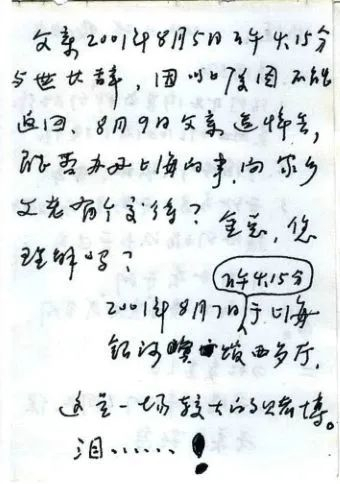 父亲2001年8月5日下午4.15分
与世长辞,因以原因不能
返回,8月9日父亲追悼会,
能否办好上海的事,向家乡
父老有个交待?金志,您
理解吗?
下午4.15分
2001年8月7日于上海
银河宾馆西多厅.
这是一场较大的赌博。
泪……!